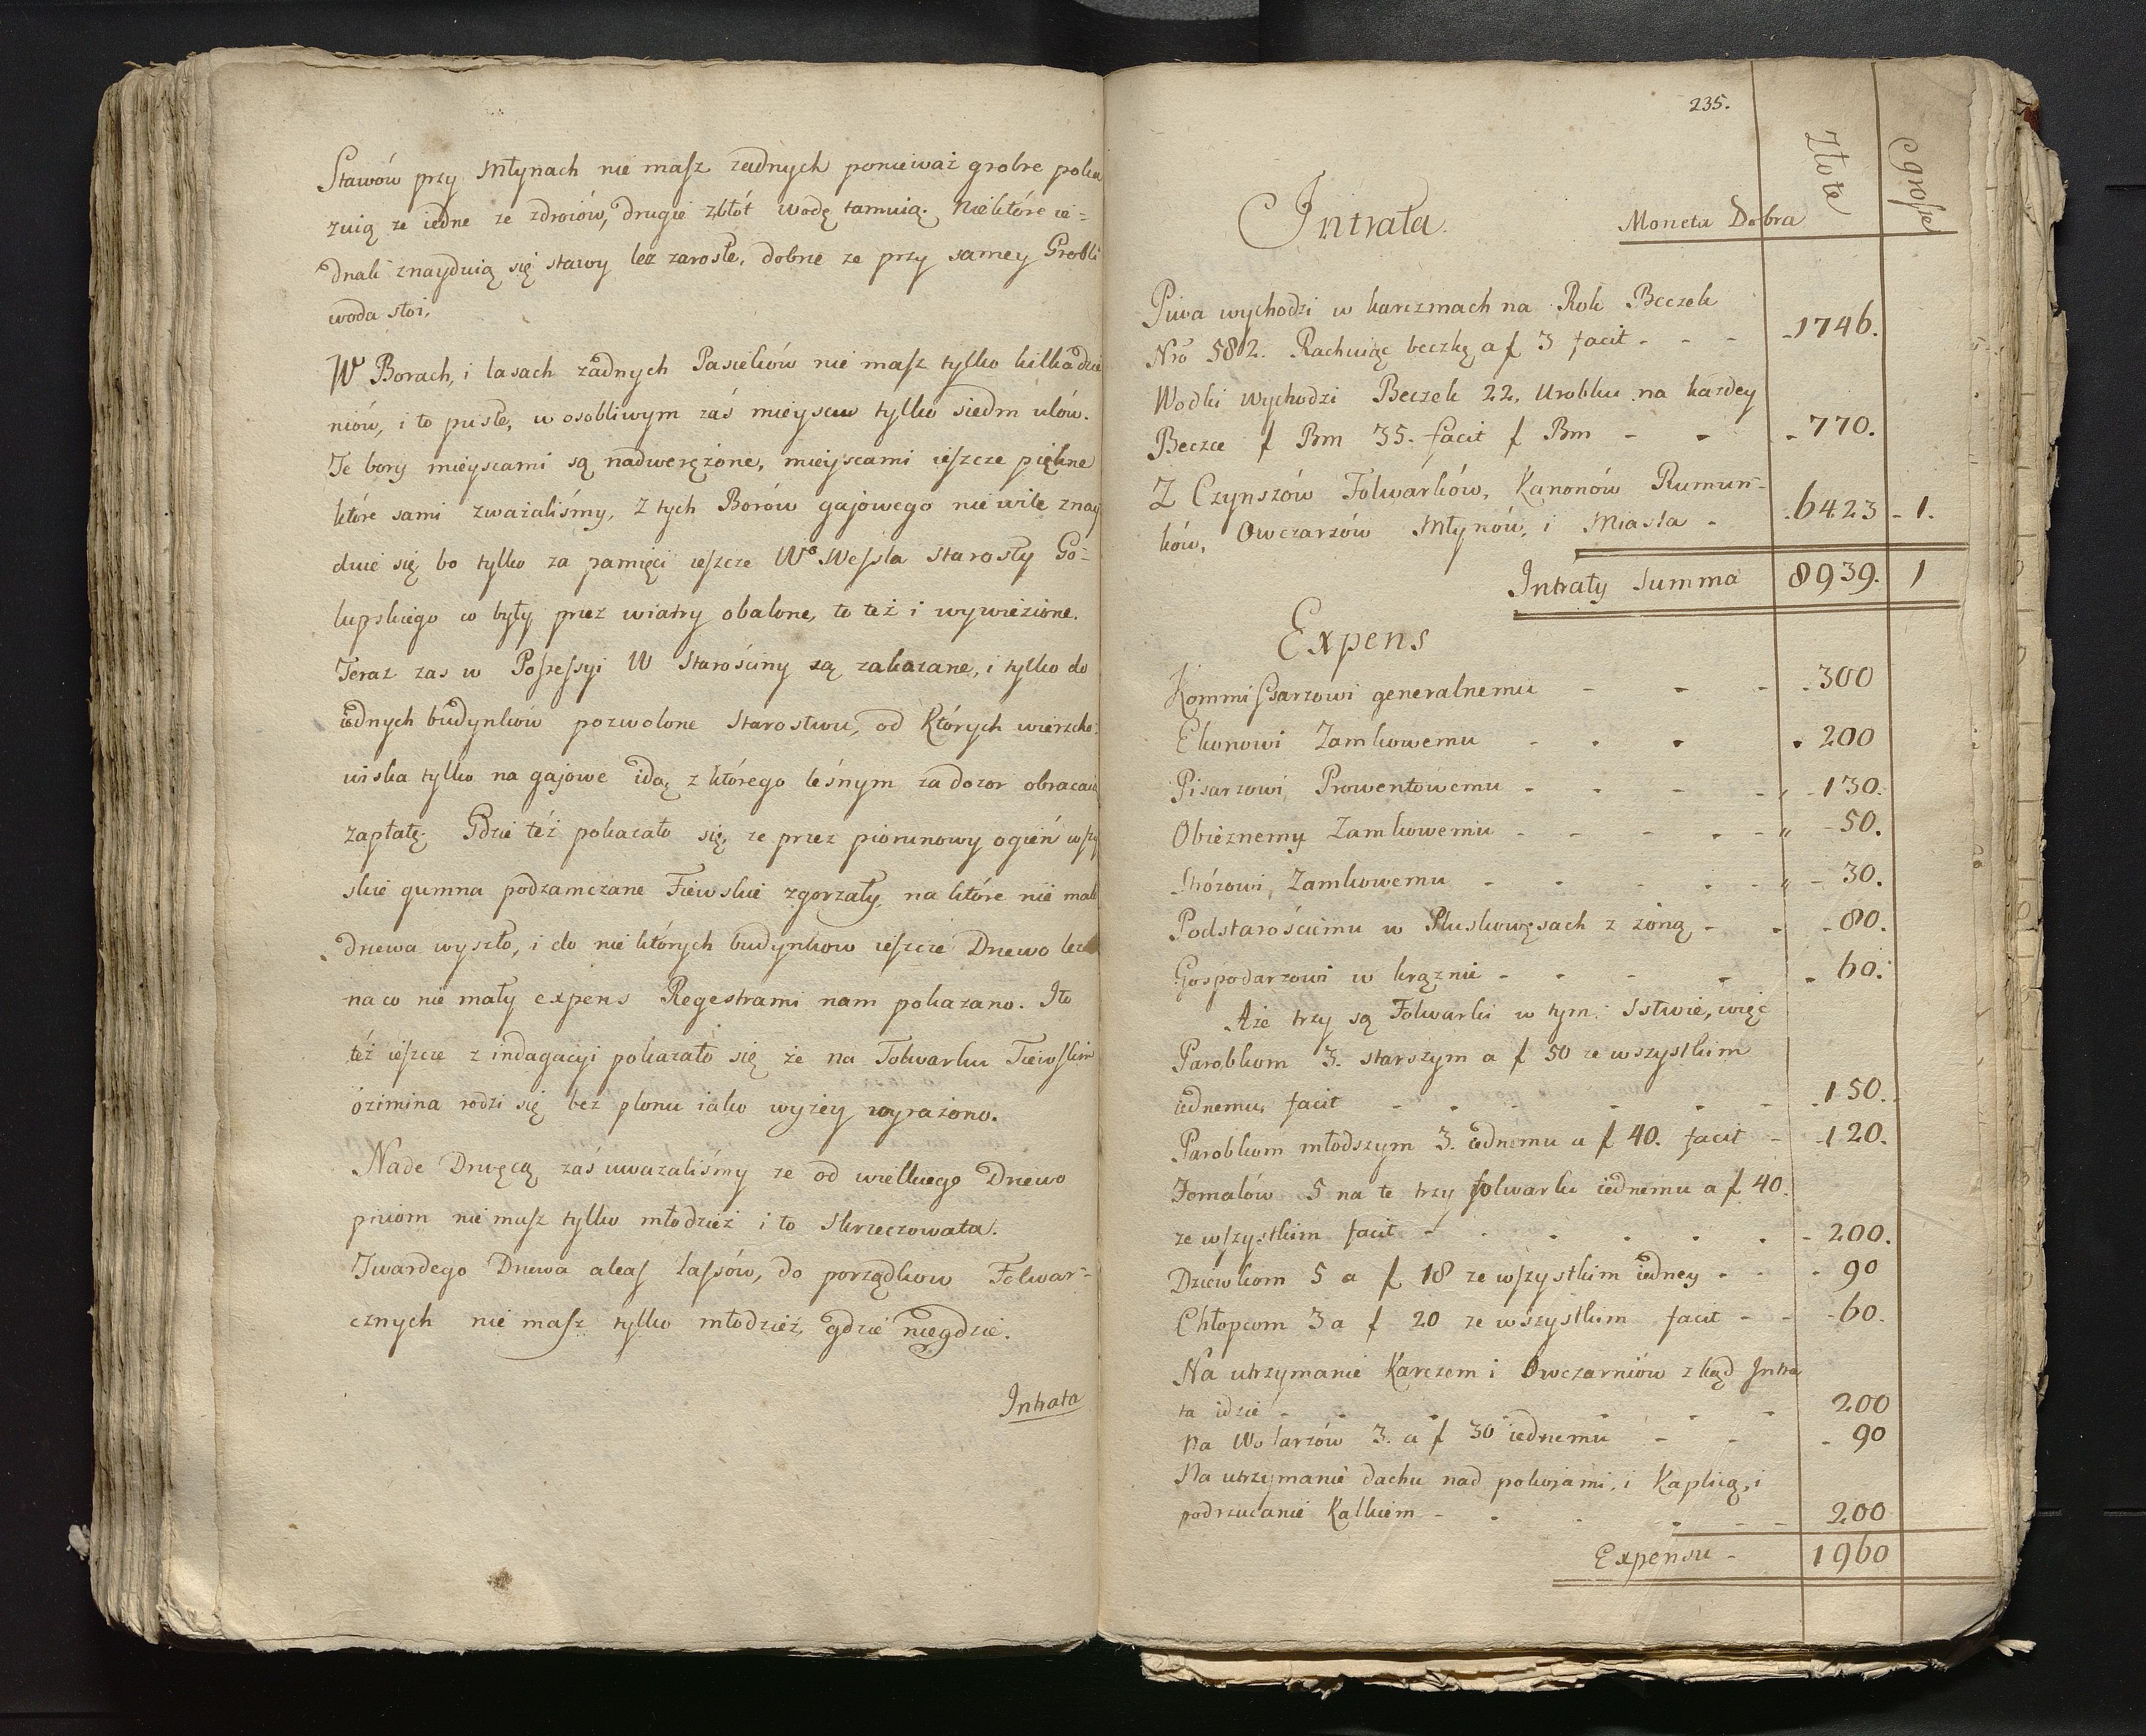 Stawów przy Młynach nie masz żadnych ponieważ groble poka
zuią ze iedne ze zdroiów, drugie z błót wodę tamuią. Niektóre ie=
dnak znayduią się stawy lecz zarosłe, dobrze ze przy samey Grobli
woda stoi.
W Borach, i lasach żadnych Pasieków nie masz tylko kilka dzie
niów, i to puste, w osobliwym zaś mieyscu tylko siedm ulów.
Te bory mieyscami są nadwerężone, mieyscami ieszcze piękne
które sami zważaliśmy, z tych Borów gajowego nie wiele znay
duie się bo tylko za pamięci ieszcze Wo Wessla Starosty Go=
lupskiego co były przez wiatry obalone, to też i wywiezione.
Teraz zas w Possessyi W Starościny są zakazane, i tylko do
iednych budynków pozwolone Starostwu, od Których wierzcho=
wiska tylko na gajowe idą, z którego leśnym za dozor obracaią
zapłatę. Gdzie też pokazało się, ze przez piorunowy ogień wszy
skie gumna podzamczane Fiewskie zgorzały, na które nie mało
drzewa wyszło, i do nie których budynkow ieszcze Drzewo leży
na co nie mały expens Regestrami nam pokazano. I to
też ieszcze z indagacyi pokazało się że na Folwarku Fiewskim
ozimina rodzi się bez plonu iako wyżey wyrażono.
Nade Drwęcą zaś uwazaliśmy ze od wielkiego Drzewo
pniom nie masz tylko młodzież i to Skrzeczowata.
Twardego Drzewa aleas Lassów, do porządkow Folwar=
cznych nie masz tylko młodzież, gdzie niegdzie.
Intrata
235.
Złote
grosze
Intrata.
Moneta Dobra
Piwa wychodzi w karczmach na Rok Beczek
Nro 582. Rachuiąc beczkę a f 3 facit - - - 1746.
Wodki wychodzi Beczek 22, Urobku na każdey
Beczce f Bm 35. facit f Bm - - - 770.
Z Czynszów Folwarków, Kanonów Rumun=
ków, Owczarzów Młynów, i Miasta - - 6423 - 1.
Intraty Summa 8939. 1
Expens
Kommissarzowi generalnemu - - - 300
Ekonowi Zamkowemu - - - 200
Pisarzowi Prowentowemu - - - 130.
Obieznemy Zamkowemu - - - 50.
Stróżowi Zamkowemu - - - 30.
Podstarościemu w Pluskowęsach z żoną - - 80.
Gospodarzowi w krąznie - - - 60.
Aże trzy są Folwarki w tym Sstwie, więc
Parobkom 3. starszym a f 50 ze wszystkim
iednemu, facit - - - 150.
Parobkom młodszym 3. iednemu a f 40. facit - 120.
Fornalów 5 na te trzy folwarku iednemu a f 40.
ze wszystkim facit - - - 200.
Dziewkom 5 a f 18 ze wszystkim iedney - - 90
Chłopcom 3 a f 20 ze wszystkim facit - - 60.
Na utrzymanie Karczem i Owczarniów z kąd Intra
ta idzie - - - 200
Na Wolarzów 3. a f 30 iednemu - - - 90
Na utrzymanie dachu nad pokojami, i Kaplicą, i
podrzucanie Kalkiem - - - 200
Expensu - 1960